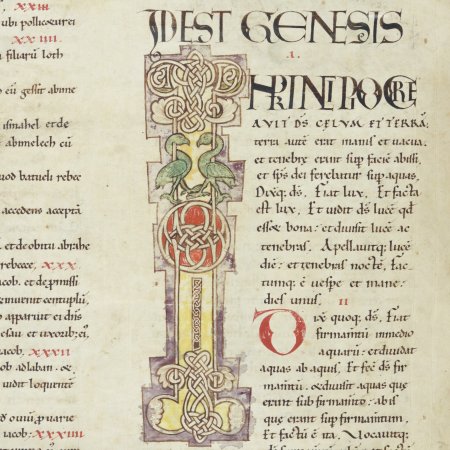 XXIII
ubi pollicetur ei
XXIIII
filiarū loth
eū gessit abime
ismahel et de
abimelech eū
batueli rebec
accedens acceptā
et de obitu abrahe
rebecce, XXX
iacob. et de pmissi
centuplū,
apparuit ei dn̄s
esau et uxorib; ei,
iacob. XXXII
ob ad laban. de
uidit loquente
iacob: XXXIIII
IDEST GENESIS
I.
IN PRINCIPIO CRE
AVIT D̄S CELUM ET TERRĀ;
terra autē erat inanis et uacua.
et tenebrę erant sup faciē abissi,
et sp̄s dei ferebatur sup aquas,
Dixq; d̄s, Fiat lux. Et facta
est lux, Et uidit d̄s lucē qđ
esset bona: et diuisit lucē ac
tenebras. Appellauitq; lucē
diē: et tenebras noctē, fac
tumq; ē uespe et mane:
dies unus,
II
Dix quoq; d̄s, Fiat
firmamtū in medio
aquarū: et diuidat
aquas ab aquis, Et fec d̄s fir
mamtū, et diuisit aquas que
erant sub firmamto: ab is
que erant sup firmamtum,
Et factū ē ita, Uocauitq;